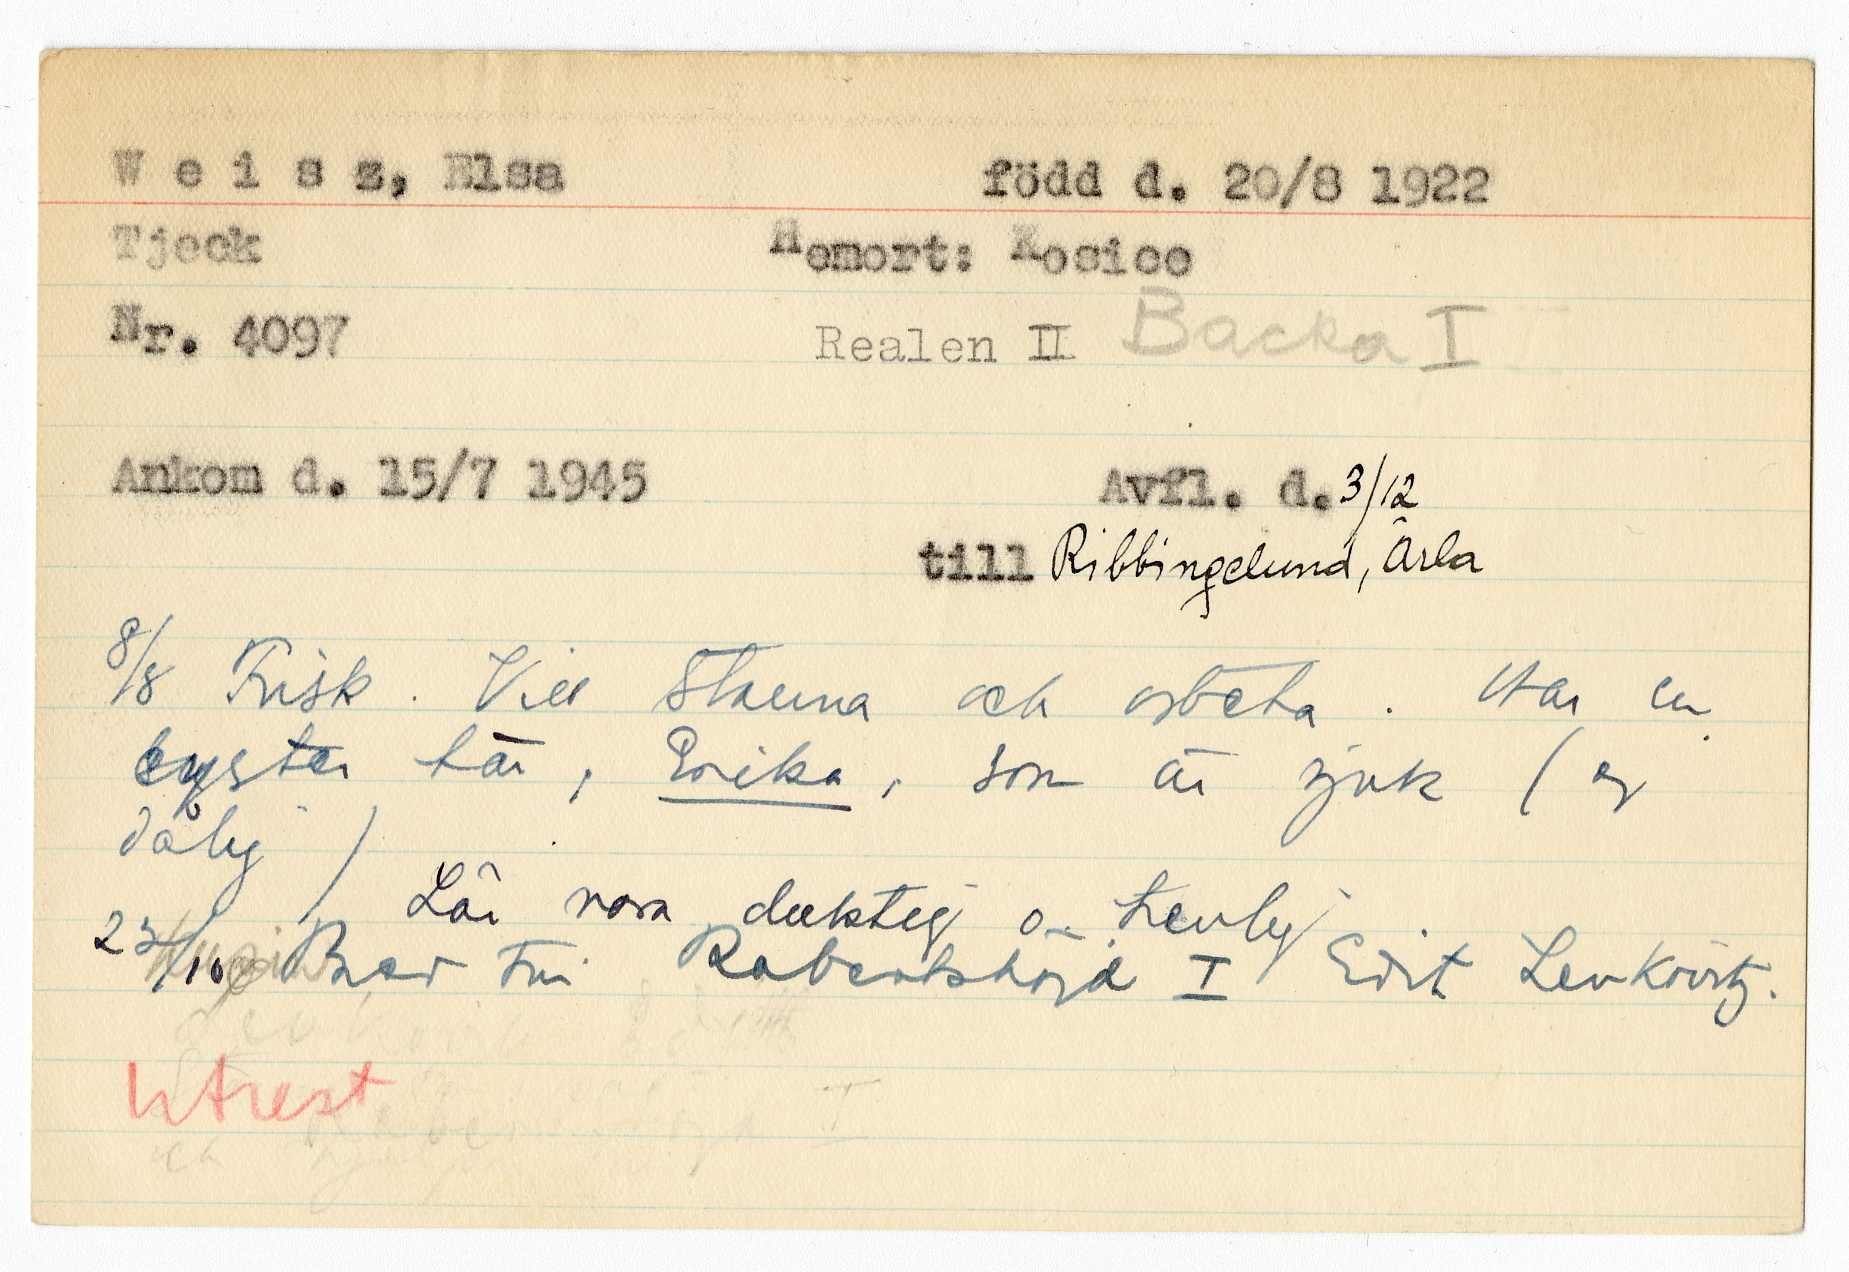 Weisz, Elsa född d. 20/8 1922
Tjeck Hemort: Kosice
Nr. 4097 Realen II Backa I
Ankom d. 15/7 1945 Avfl. d. 3/12
till Ribbingelund, Ärla
8/8 Frisk. Vill stanna och arbeta. Har en
syster här, Erika, som är sjuk (ej
dålig)
Lär vara duktig o. trevlig
23/10 Brev från Robertshöjd I Edit Levkovitz.
Utrest